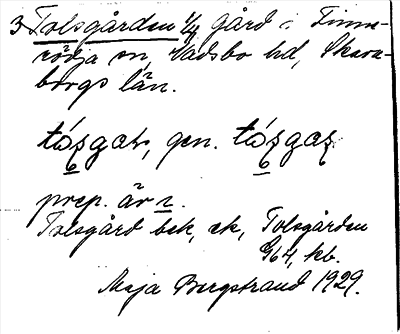 3 Tolsgården 1/4 gård i Finne-
rödja sn, Vadsbo hd, Skara-
borgs län.
tósgaɹ, gen. tósgaʂ
prep. är i.
Tolsgård bek, ek, Tolsgården
G64, kb.
Maja Bergstrand 1929.